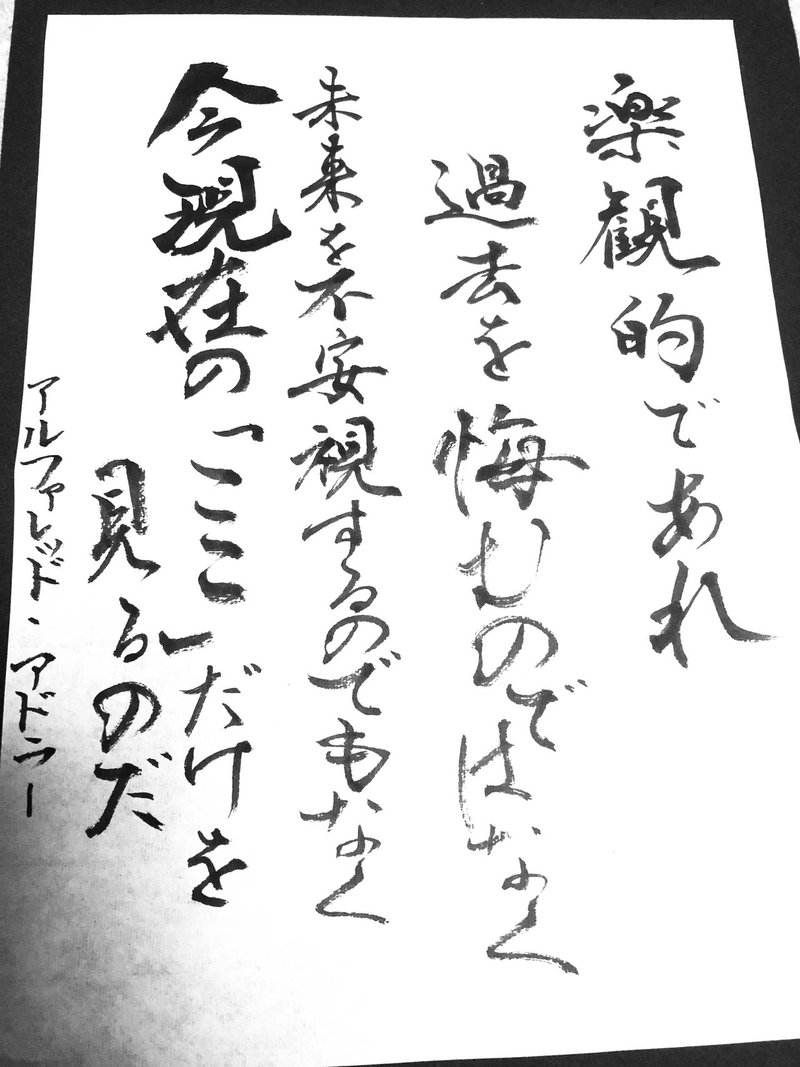 楽観的であれ
過去を悔むのではなく
未来を不安視するのでもなく
今現在の「ここ」だけを
見るのだ
アルファレッド・アドラー